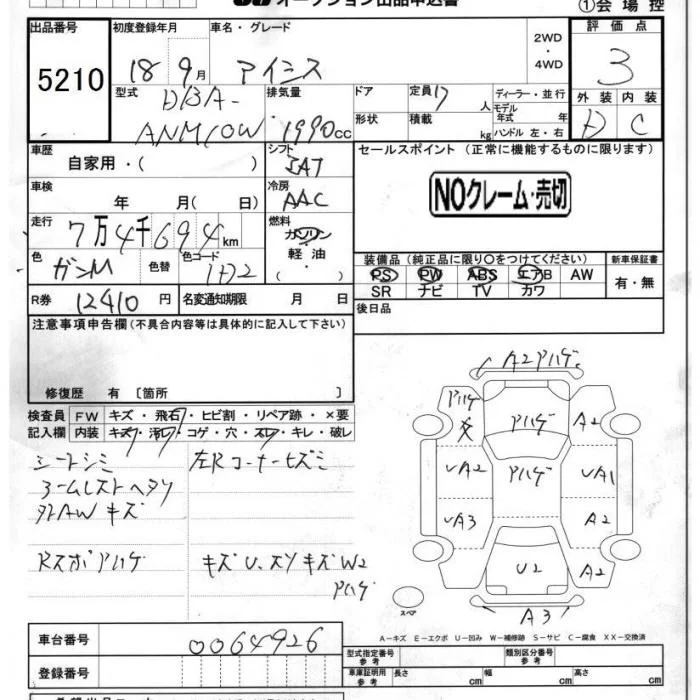 オークション出品申込書
①会場控
出品番号
5210
初度登録年月
18 9月
車名・グレード
アイシス
2WD
・
4WD
評価点
3
型式
DBA-
ANM10W
排気量
1990cc
ドア
形状
定員 17人
積載 kg
ディーラー・並行
モデル年式 年
ハンドル 左・右
外装
D
内装
C
車歴
自家用・( )
シフト
IAT
車検
年 月( 日)
冷房
AAC
走行
7万4千694km
燃料
ガソリン
軽油
色
ガンM
色替
色コード
1D2
R券 12410円
名変通知期限 月 日
セールスポイント(正常に機能するものに限ります)
NOクレーム・売切
装備品(純正品に限り○をつけてください)
PS PW ABS エアB AW
SR ナビ TV カワ
新車保証書
有・無
後日品
注意事項申告欄(不具合内容等は具体的に記入して下さい)
修復歴 有〔箇所 〕
検査員記入欄
FW キズ・飛石・ヒビ割・リペア跡・×要
内装 キズ・汚れ・コゲ・穴・スレ・キレ・破レ
シートシミ
左Rコーナーヒズミ
アームレストヘタリ
外AWキズ
Rスポアハゲ
キズU、スリキズW2
アハゲ
A2アハゲ
アハゲ
アハゲ
A2
UA2
アハゲ
UA1
UA3
A2
U2
A2
A3
スペア
A―キズ E―エクボ U―凹み W―補修跡 S―サビ C―腐食 XX―交換済
車台番号
0064926
登録番号
型式指定番号
参考
類別区分番号
参考
車庫証明用
参考
長さ cm
幅 cm
高さ cm